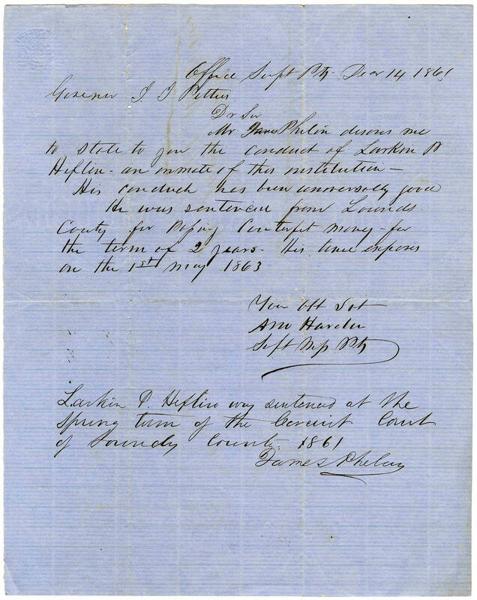 Office Supt Pty Dec 14 1861
Govenor J J Pettus
Dr Sir
Mr James Phelin desires me
to state to you the conduct of Larkin P
Heflin - an inmate of this institution -
His conduct has been universally good
He was sentenced from Lounds
County for Passing Counterfit money - for
the term of 2 years. His time expires
on the 1st May 1863
Your Obt Svt
Supt Mp Pty
Larkin P Heflin was sentenced at the
Spring term of the Circuit Court
of Lounds County 1861
James Phelan